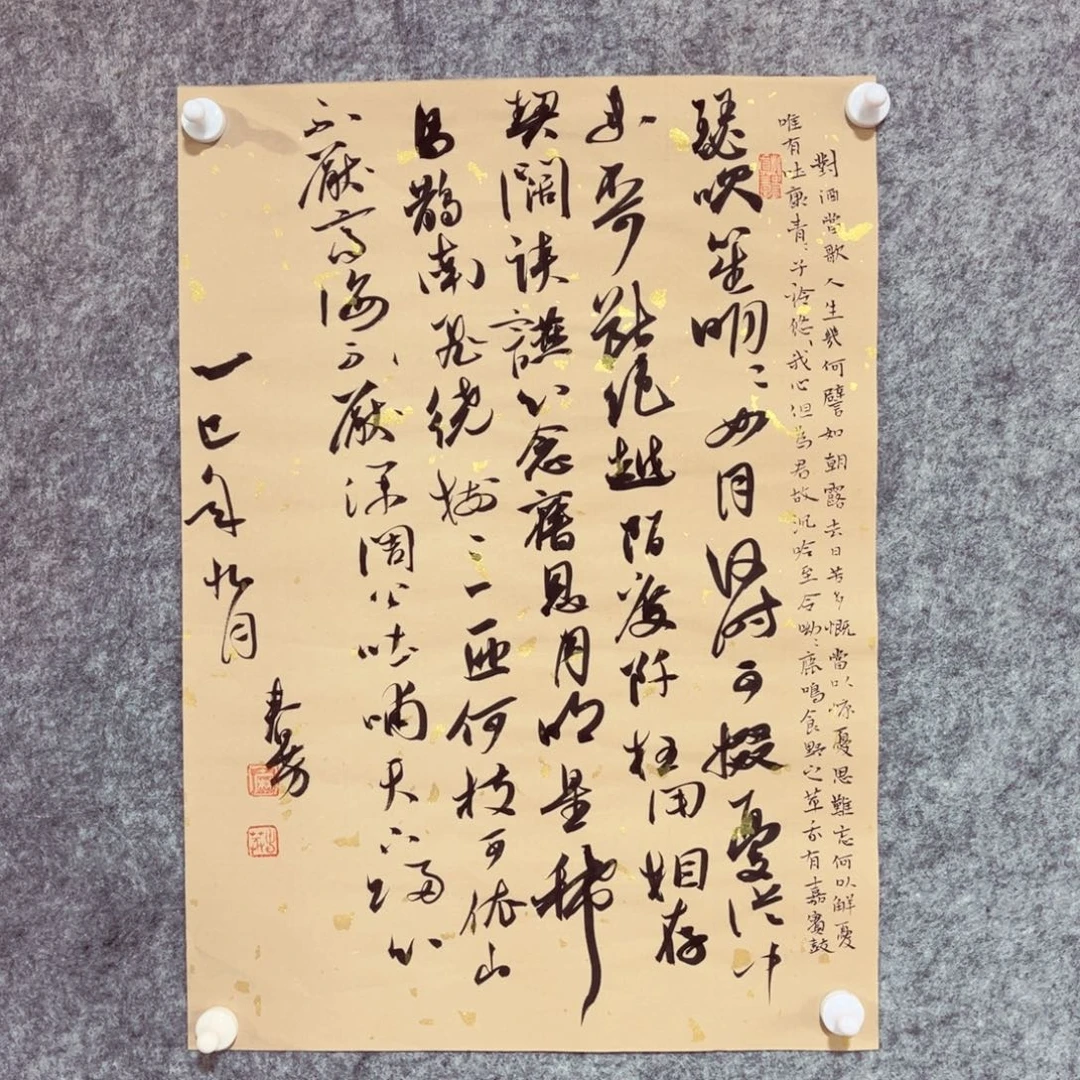 對酒當歌人生幾何譬如朝露去日苦多慨當以慷憂思難忘何以解憂
唯有吐康青〻子衿悠〻我心但為君故沉吟至今呦〻鹿鳴食野之草亦有嘉賓鼓
瑟吹笙明〻如月何時可掇憂從中
來不可斷絕越陌度阡枉用相存
契闊談讌心念舊恩月明星稀
烏鵲南飛繞樹三匝何枝可依山
不厭高海不厭深周公吐哺天下歸心
乙巳年九月